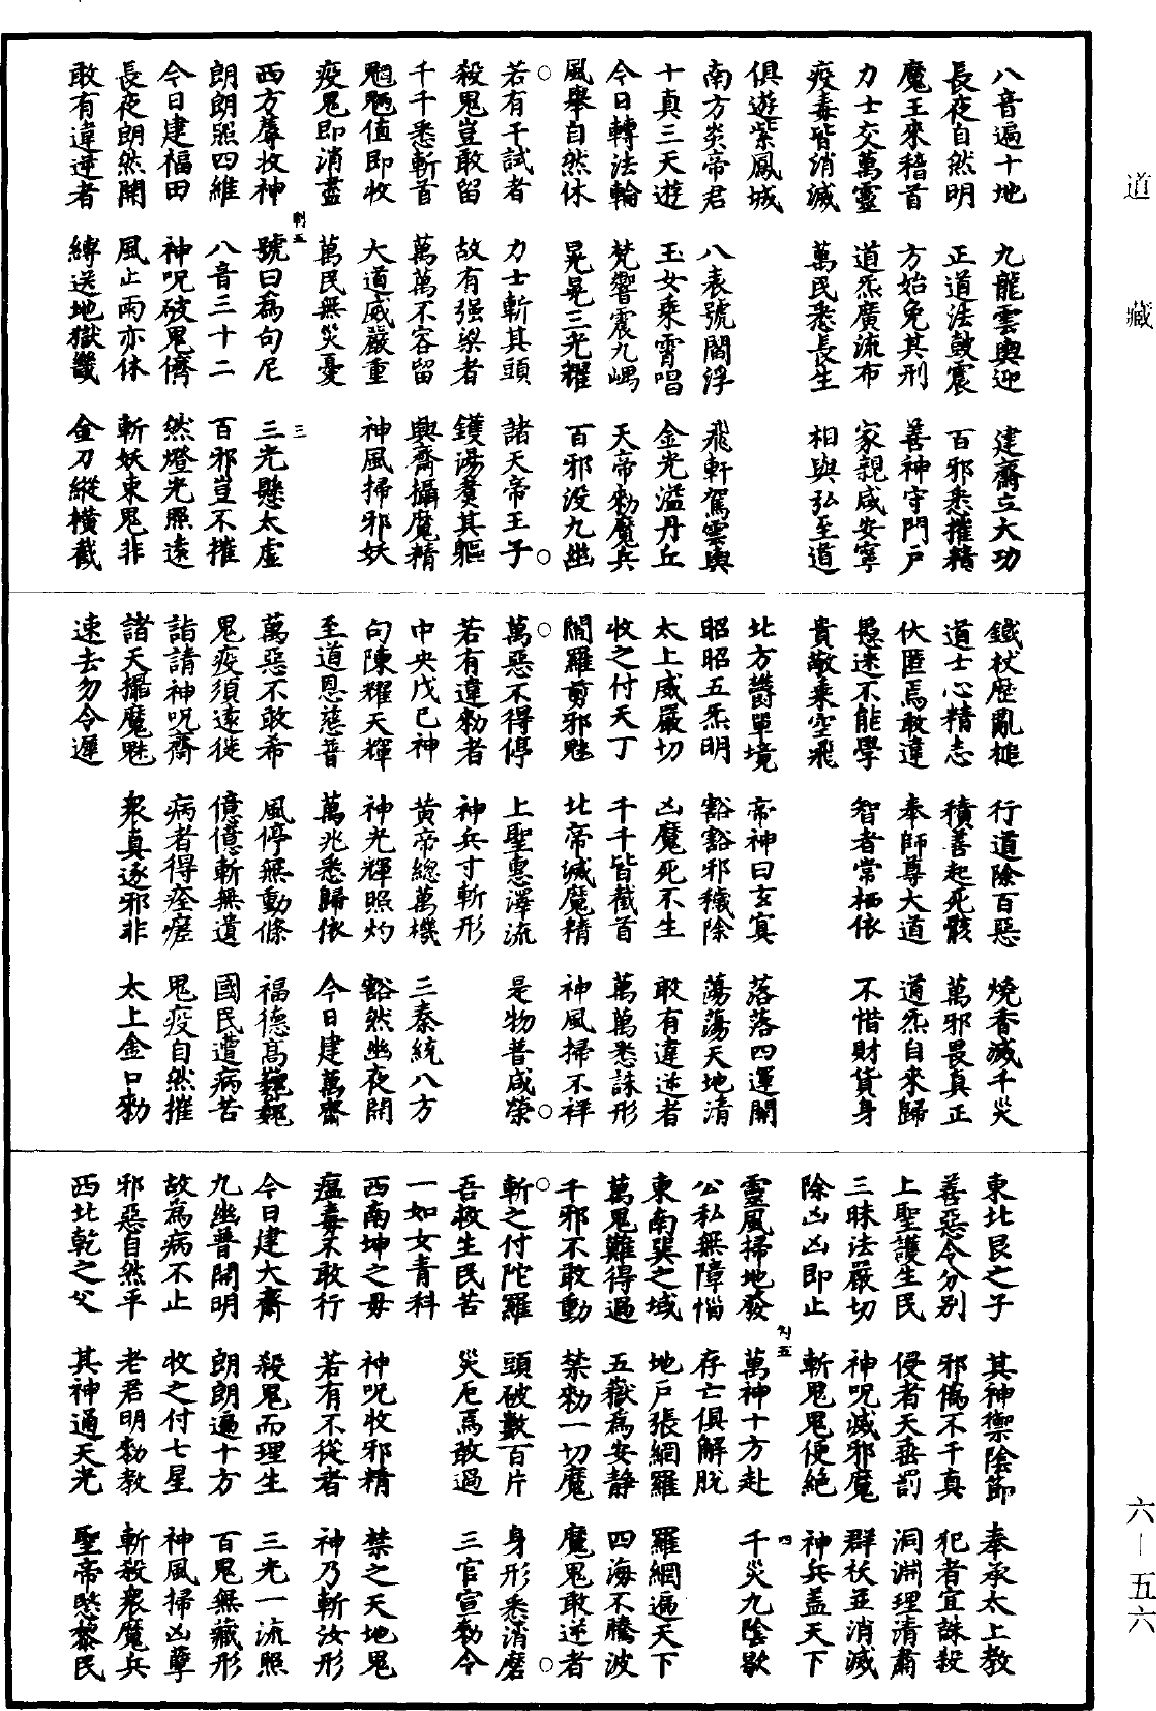 道藏
八音遍十地　九龍雲輿迎　建齋立大功
長夜自然明　正道法鼓震　百邪悉摧精
魔王來稽首　方始免其刑　善神守門戶
力士交萬靈　道炁廣流布　家親咸安寧
疫毒皆消滅　萬民悉長生　相與弘至道
俱遊紫鳳城
南方炎帝君　八表號閻浮　飛軒駕雲輿
十真三天遊　玉女乘霄唱　金光溢丹丘
今日轉法輪　梵響震九嵎　天帝勑魔兵
風舉自然休　晃晃三光耀　百邪没九幽
○　○
若有干試者　力士斬其頭　諸天帝王子
殺鬼豈敢留　故有强梁者　鑊湯煑其軀
千千悉斬首　萬萬不容留　興齋攝魔精
魍魎值即收　大道威嚴重　神風掃邪妖
疫鬼即消盡　萬民無災憂
制五　三
西方辱收神　號曰為句尼　三光懸太虛
朗朗照四維　八音三十二　百邪豈不摧
今日建福田　神呪破鬼儕　然燈光照遠
長夜朗然開　風止雨亦休　斬妖東鬼非
敢有違逆者　縛送地獄畿　金刀縱橫截
鐵杖歷亂槌　行道除百惡　燒香滅千災
道士心精志　積善起死骸　萬邪畏真正
伏匿焉敢違　奉師尊大道　道炁自來歸
愚迷不能學　智者常栖依　不惜財貨身
貴敬乘空飛
北方欝單境　帝神曰玄寞　落落四運開
昭昭五炁明　豁豁邪穢除　蕩蕩天地清
太上威嚴切　凶魔死不生　敢有違逆者
收之付天丁　千千皆截首　萬萬悉誅形
閻羅剪邪魅　北帝滅魔精　神風掃不祥
○　○
萬惡不得停　上聖惠澤流　是物普咸榮
若有違勑者　神兵寸斬形
中央戊巳神　黄帝總萬機　三秦統八方
句陳耀天輝　神光輝照灼　豁然幽夜開
至道恩慈普　萬兆悉歸依　今日建萬齋
萬惡不敢希　風停無動條　福德高巍巍
鬼疫須遠徙　億億斬無遺　國民遭病苦
詣請神呪齋　病者得痊瘥　鬼疫自然摧
諸天攝魔魅　衆真逐邪非　太上金口勑
速去勿令遲
東北艮之子　其神禦陰節　奉承太上教
善惡令分別　邪僞不干真　犯者宜誅殺
上聖護生民　侵者天垂罰　洞淵理清肅
三昧法嚴切　神呪滅邪魔　群袄並消滅
除凶凶即止　斬鬼鬼便絶　神兵盖天下
制五　四
靈風掃地發　萬神十方赴　千災九陰歇
公私無障惱　存亡俱解脫
東南巽之域　地戶張網羅　羅網遍天下
萬鬼難得過　五嶽為安静　四海不騰波
千邪不敢動　禁勑一切魔　魔鬼敢逆者
○　○
斬之付陀羅　頭破數百片　身形悉消磨
吾救生民苦　災厄焉敢過　三官宣勑令
一如女青科
西南坤之毋　神呪收邪精　禁之天地鬼
瘟毒不敢行　若有不從者　神乃斬汝形
今日建大齋　殺鬼而理生　三光一流照
九幽普開明　朗朗遍十方　百鬼無藏形
故為病不止　收之付七星　神風掃凶孽
邪惡自然平　老君明勑教　斬殺衆魔兵
西北乾之父　其神通天光　聖帝愍黎民
六－五六